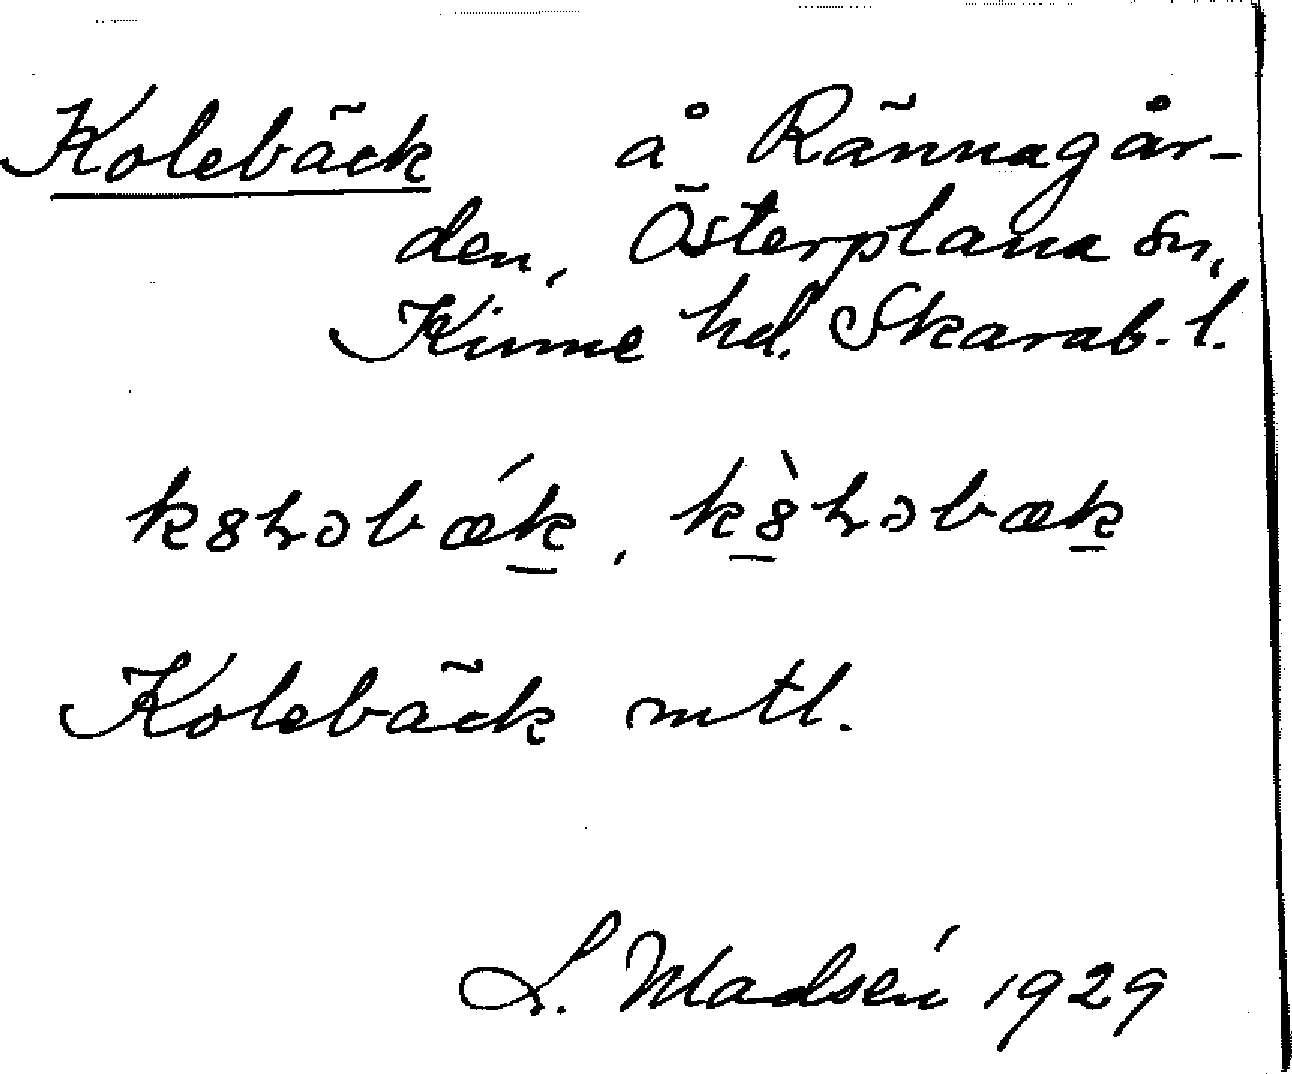 Kolebäck å Rännagår-
den, Österplana sn,
Kinne hd. Skarab. l.
k8ɿəbǽk, k8̀ɿəbæk
Kolebäck mtl.
L. Madsén 1929